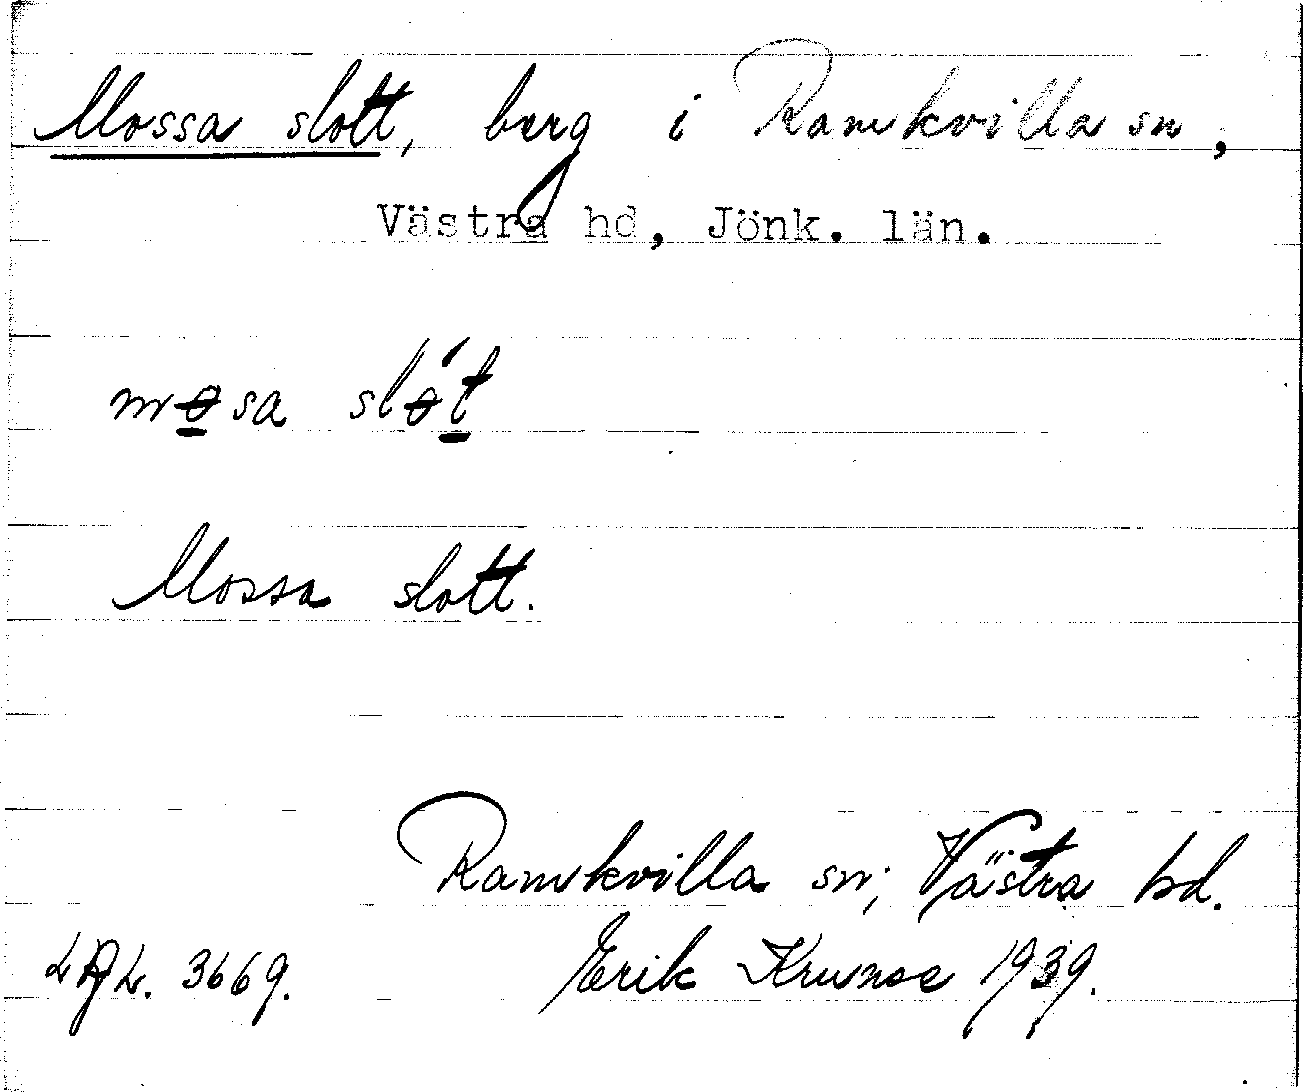 Mossa slott, berg i Ramkvilla sn,
Västra hd, Jönk. län.
mɵ̲sa slɵ́t̲
Mossa slott.
Ramkvilla sn; Västra hd.
3669. Erik 1939.